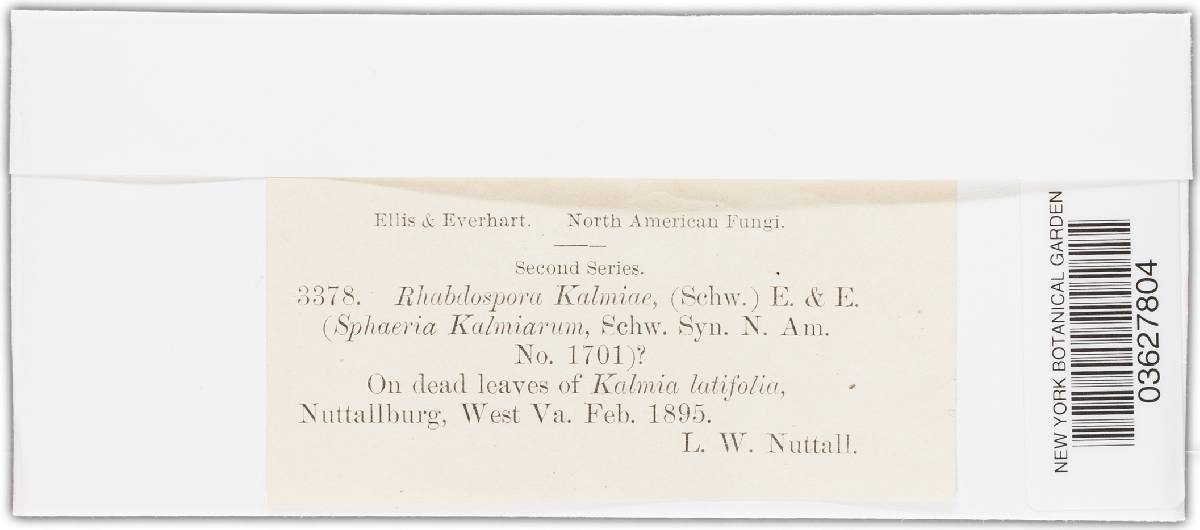 Ellis & Everhart. North American Fungi.
Second Series.
3378. Rhabdospora Kalmiae, (Schw.) E. & E.
(Sphaeria Kalmiarum, Schw. Syn. N. Am.
No. 1701)?
On dead leaves of Kalmia latifolia,
Nuttallburg, West Va. Feb. 1895.
L. W. Nuttall.
NEW YORK BOTANICAL GARDEN
03627804